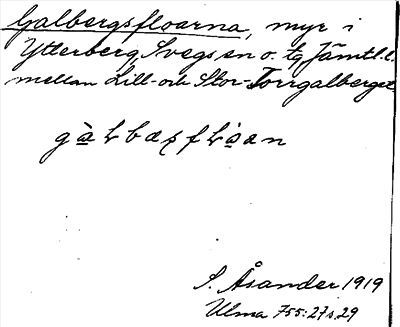 Galbergsfloarna, myr i
Ytterberg, Svegs sn o. tg Jämtl. l.
mellan Lill- och Stor-Torrgalberget
S. Åsander 1919
Ulma 755:27 s. 29